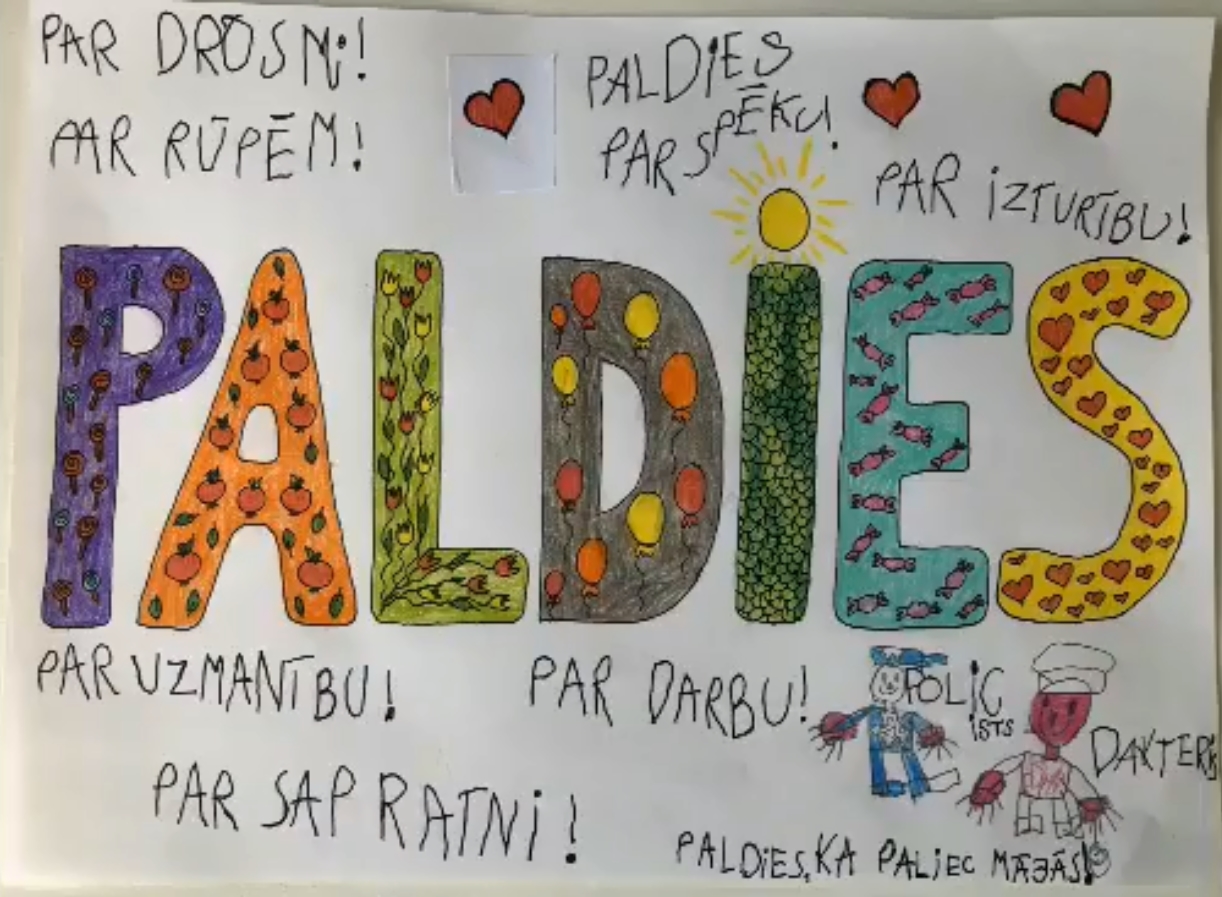 PAR DROSMi!
PAR RŪPĒM!
PALDiES
PAR SPĒKU!
PAR iZTURĪBU!
PALDIES
PAR UZMANĪBU!
PAR DARBU!
POLiC
iSTS
DAKTERiS
PAR SAPRATNi!
PALDiES, KA PALiEC MĀJĀS!